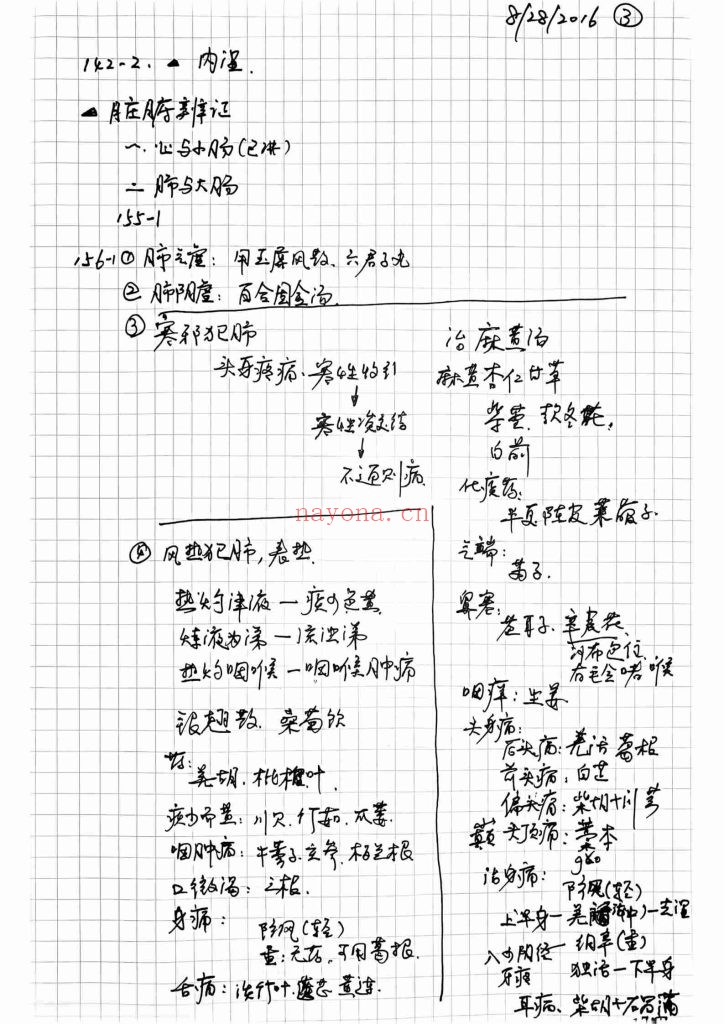 8/28/2016 ③
142-2. ▲ 内湿.
▲ 脏腑辨证
一. 心与小肠(已讲)
二 肺与大肠
155-1
156-1 ① 肺气虚: 用玉屏风散、六君子丸
② 肺阴虚: 百合固金汤.
③ 寒邪犯肺
头身疼痛. 寒性收引
↓
寒性凝结
↓
不通则痛.
治 麻黄汤
麻黄杏仁甘草
紫菀. 款冬花,
白前
化痰药:
半夏陈皮莱菔子.
气喘:
苏子.
鼻塞:
苍耳子. 辛夷花.
纱布包住
有毛会啫喉
咽痒: 生姜
头身痛:
后头痛: 羌活 葛根
前头痛: 白芷
偏头痛: 柴胡+川芎
巅 头顶痛: 藁本
gǎo
治身痛:
防风(轻)
上半身—羌活(中)—去湿
入少阴经— 细辛(重)
牙痛 独活—下半身
耳痛、柴胡+石菖蒲
④ 风热犯肺, 表热.
热灼津液 — 痰少色黄.
炼液为涕 — 流浊涕
热灼咽喉 — 咽喉肿痛
银翘散. 桑菊饮
药:
前胡. 枇杷叶.
痰少而黄: 川贝. 竹茹. 瓜蒌.
咽肿痛: 牛蒡子. 玄参. 板兰根
口微渴: 芦根.
身痛:
防风(轻)
重: 无药, 可用葛根.
舌痛: 淡竹叶. 莲芯 黄连.
nayona.cn